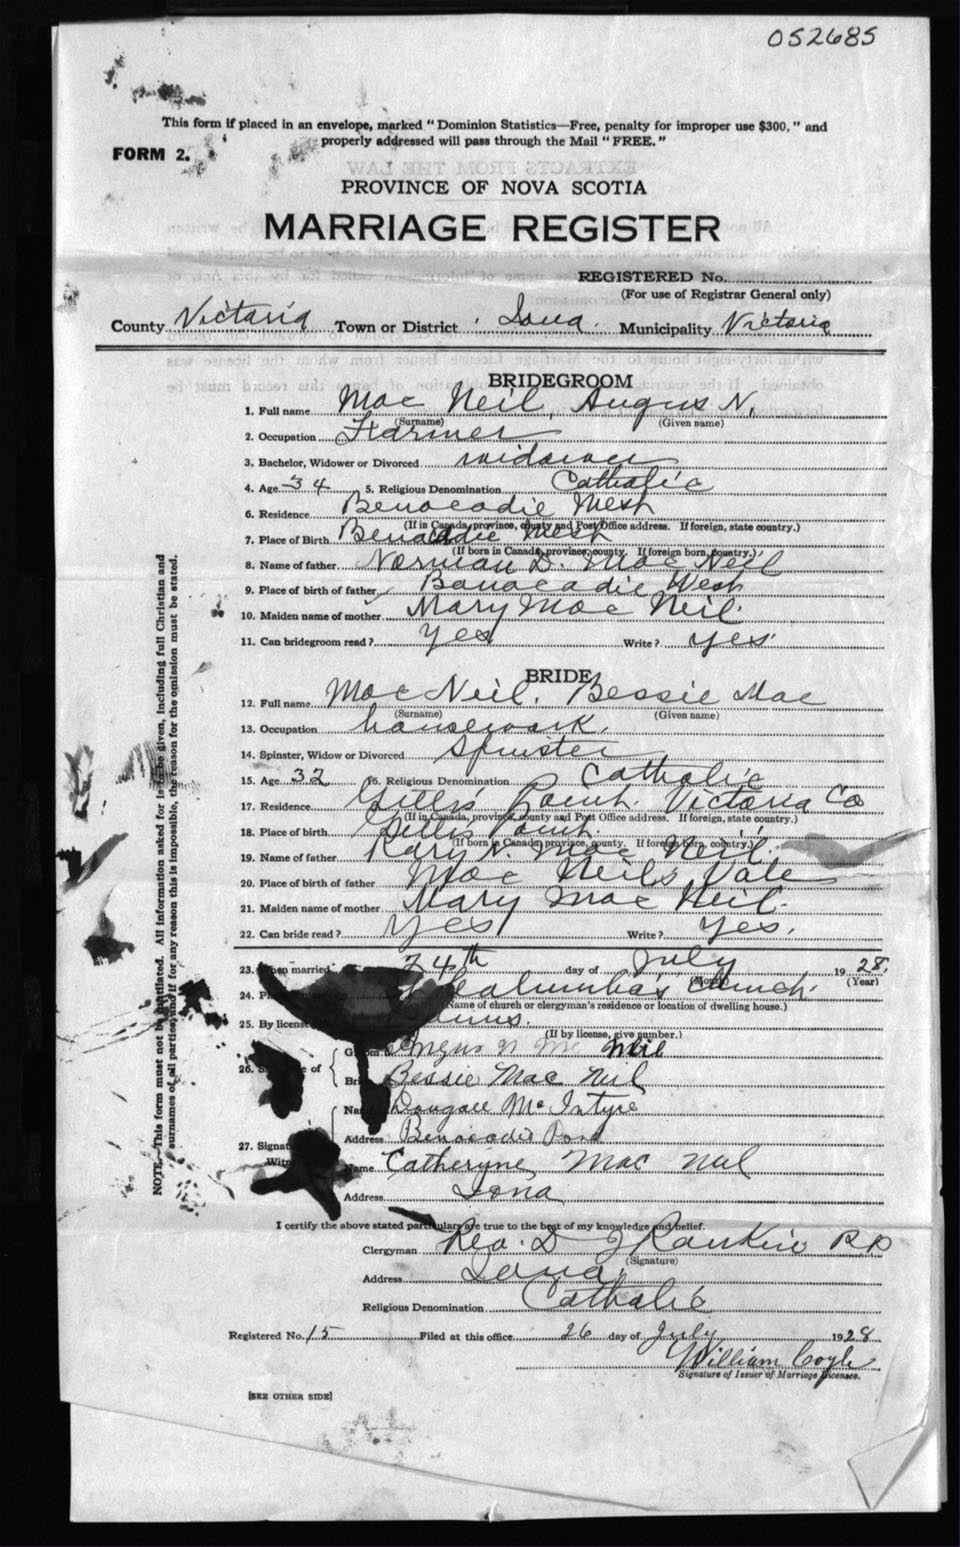 052685
This form if placed in an envelope, marked "Dominion Statistics—Free, penalty for improper use $300," and
properly addressed will pass through the Mail "FREE."
FORM 2.
PROVINCE OF NOVA SCOTIA
MARRIAGE REGISTER
REGISTERED No.
(For use of Registrar General only)
County Victoria Town or District Iona. Municipality Victoria
BRIDEGROOM
1. Full name Mac Neil, Angus N.
(Surname) (Given name)
2. Occupation Farmer
3. Bachelor, Widower or Divorced widower
4. Age 34 5. Religious Denomination Catholic
6. Residence Benacadie West
(If in Canada, province, county and Post Office address. If foreign, state country.)
7. Place of Birth Benacadie West
(If born in Canada, province, county. If foreign born, country.)
8. Name of father Norman D. Mac Neil
9. Place of birth of father Banacadie West
10. Maiden name of mother Mary Mac Neil.
11. Can bridegroom read? yes Write? yes
BRIDE
12. Full name Mac Neil, Bessie Mae
(Surname) (Given name)
13. Occupation housework.
14. Spinster, Widow or Divorced Spinster
15. Age 32 16. Religious Denomination Catholic
17. Residence Gillis' Point. Victoria Co
(If in Canada, province, county and Post Office address. If foreign, state country.)
18. Place of birth Gillis Point.
(If born in Canada, province, county. If foreign born, country.)
19. Name of father N. Mac Neil.
20. Place of birth of father Mac Neils Vale
21. Maiden name of mother Mary Mac Neil.
22. Can bride read? Yes Write? Yes.
23. When married 24th day of July 1928.
(Month) (Year)
24. Columba's Church.
(Name of church or clergyman's residence or location of dwelling house.)
25. By license
(If by license, give number.)
26. of Groom Angus N Mc Neil
Bride Bessie Mac Neil
Name Dougall McIntyre
Address Benacadie Pond
27. Signature
Name Catheryne Mac Neil
Address Iona
I certify the above stated particulars are true to the best of my knowledge and belief.
Clergyman Rev. D J Rankin P.P.
(Signature)
Address Iona,
Religious Denomination Catholic
Registered No. 15 Filed at this office 26 day of July 1928
William Coyle
Signature of Issuer of Marriage Licenses.
[SEE OTHER SIDE]
NOTE.—This form must not be mutilated. All information asked for is to be given, including full Christian and
surnames of all parties, and if for any reason this is impossible, the reason for the omission must be stated.